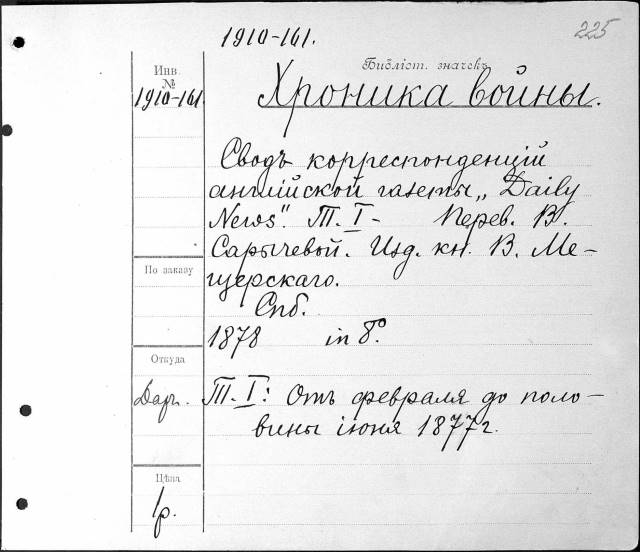 1910-161.
225
Библіот. значекъ
Инв.
№
1910-161.
Хроника войны.
Сводъ корреспонденцій
англійской газеты „Daily
News". Т. I - Перев. В.
Сарычевой. Изд. кн. В. Ме-
щерскаго.
По заказу
Спб.
1878 in 8º.
Откуда
Даръ.
Т. I: Отъ февраля до поло-
вины іюня 1877 г.
Цѣна
1р.